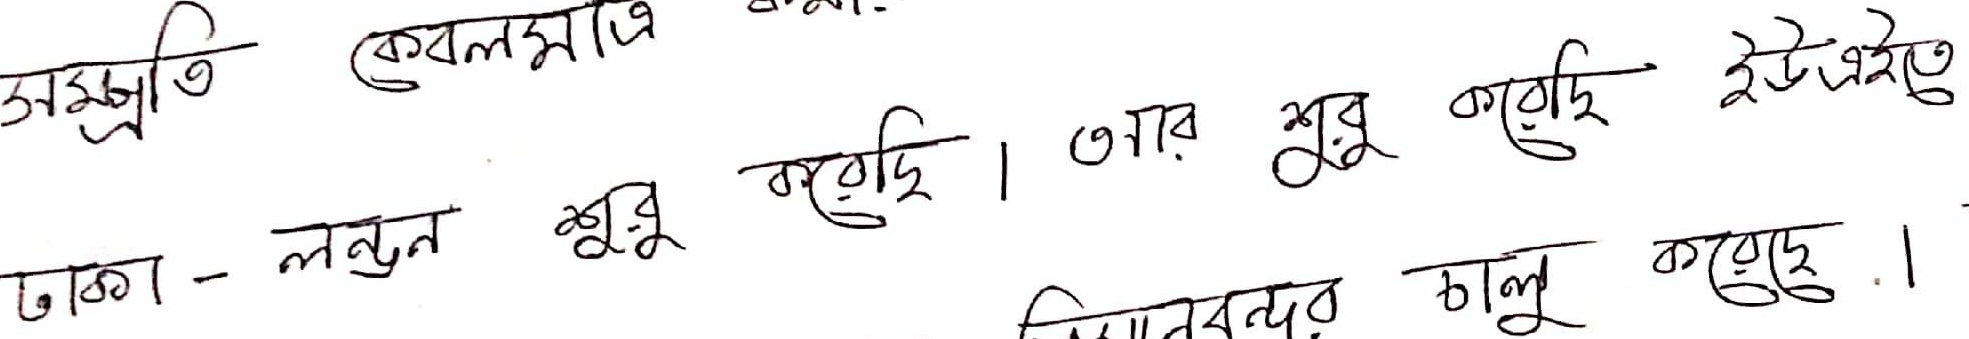 সম্প্রতি কেবলমাত্র
ঢাকা - লন্ডন শুরু করেছি। আর শুরু করেছি ইউএইতে
বিমানবন্দর চালু করেছে।